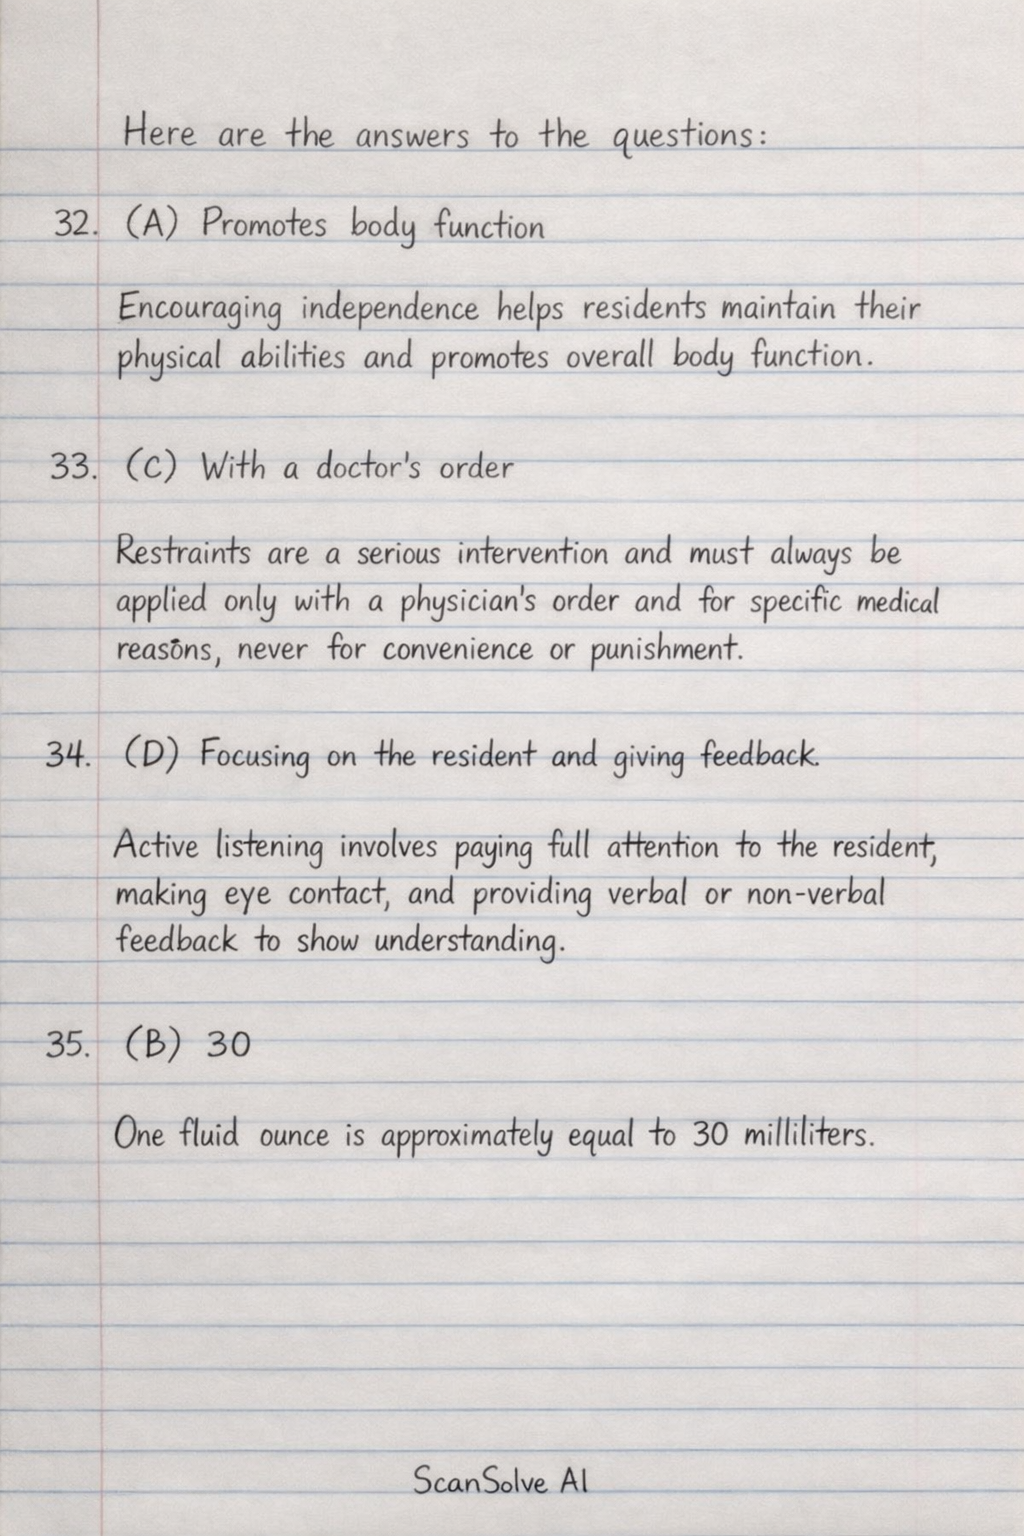 Here are the answers to the questions:
32. (A) Promotes body function
Encouraging independence helps residents maintain their
physical abilities and promotes overall body function.
33. (C) With a doctor's order
Restraints are a serious intervention and must always be
applied only with a physician's order and for specific medical
reasons, never for convenience or punishment.
34. (D) Focusing on the resident and giving feedback.
Active listening involves paying full attention to the resident,
making eye contact, and providing verbal or non-verbal
feedback to show understanding.
35. (B) 30
One fluid ounce is approximately equal to 30 milliliters.
ScanSolve AI